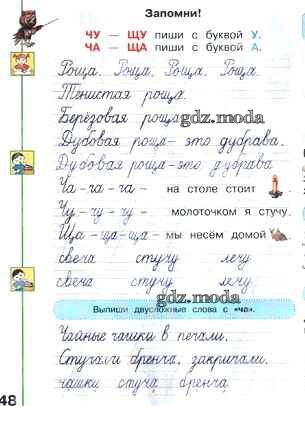 Запомни!
ЧУ — ЩУ пиши с буквой У.
ЧА — ЩА пиши с буквой А.
Роща. Роща. Роща. Роща.
Тенистая роща.
Берёзовая роща
gdz.moda
Дубовая роща - это дубрава.
Дубовая роща - это дубрава
Ча - ча - ча - на столе стоит
Чу - чу - чу - молоточком я стучу.
Ща - ща - ща - мы несём домой
свеча стучу лечу
свеча стучу лечу
gdz.moda
Выпиши двусложные слова с «ча».
Чайные чашки в печали.
Стуча и бренча, закричали.
чашки стуча бренча
48